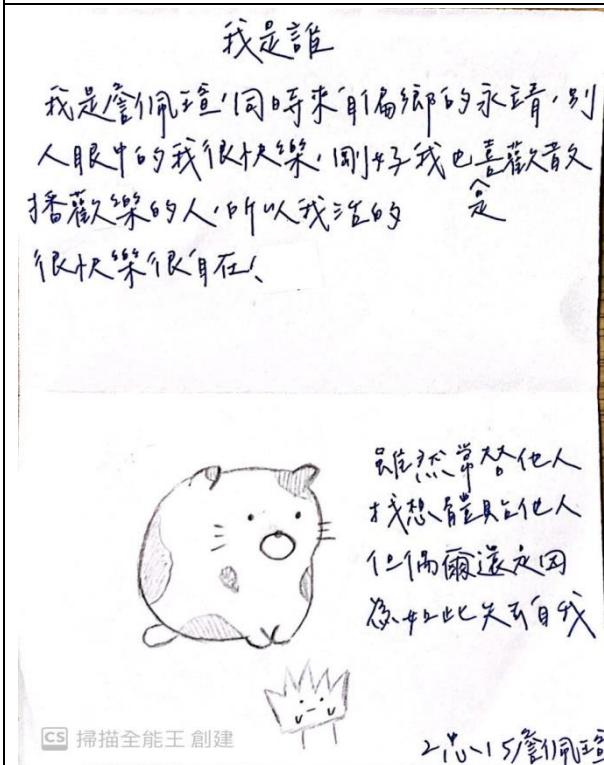 我是誰
我是詹佩瑄,同時來自偏鄉的永靖,別
人眼中的我很快樂,剛好我也是喜歡散
播歡樂的人,所以我活的
很快樂很自在!
雖然常替他人
找想體貼他人
但偶爾還是因
為如此失去自我
CS 掃描全能王 創建
15詹佩瑄